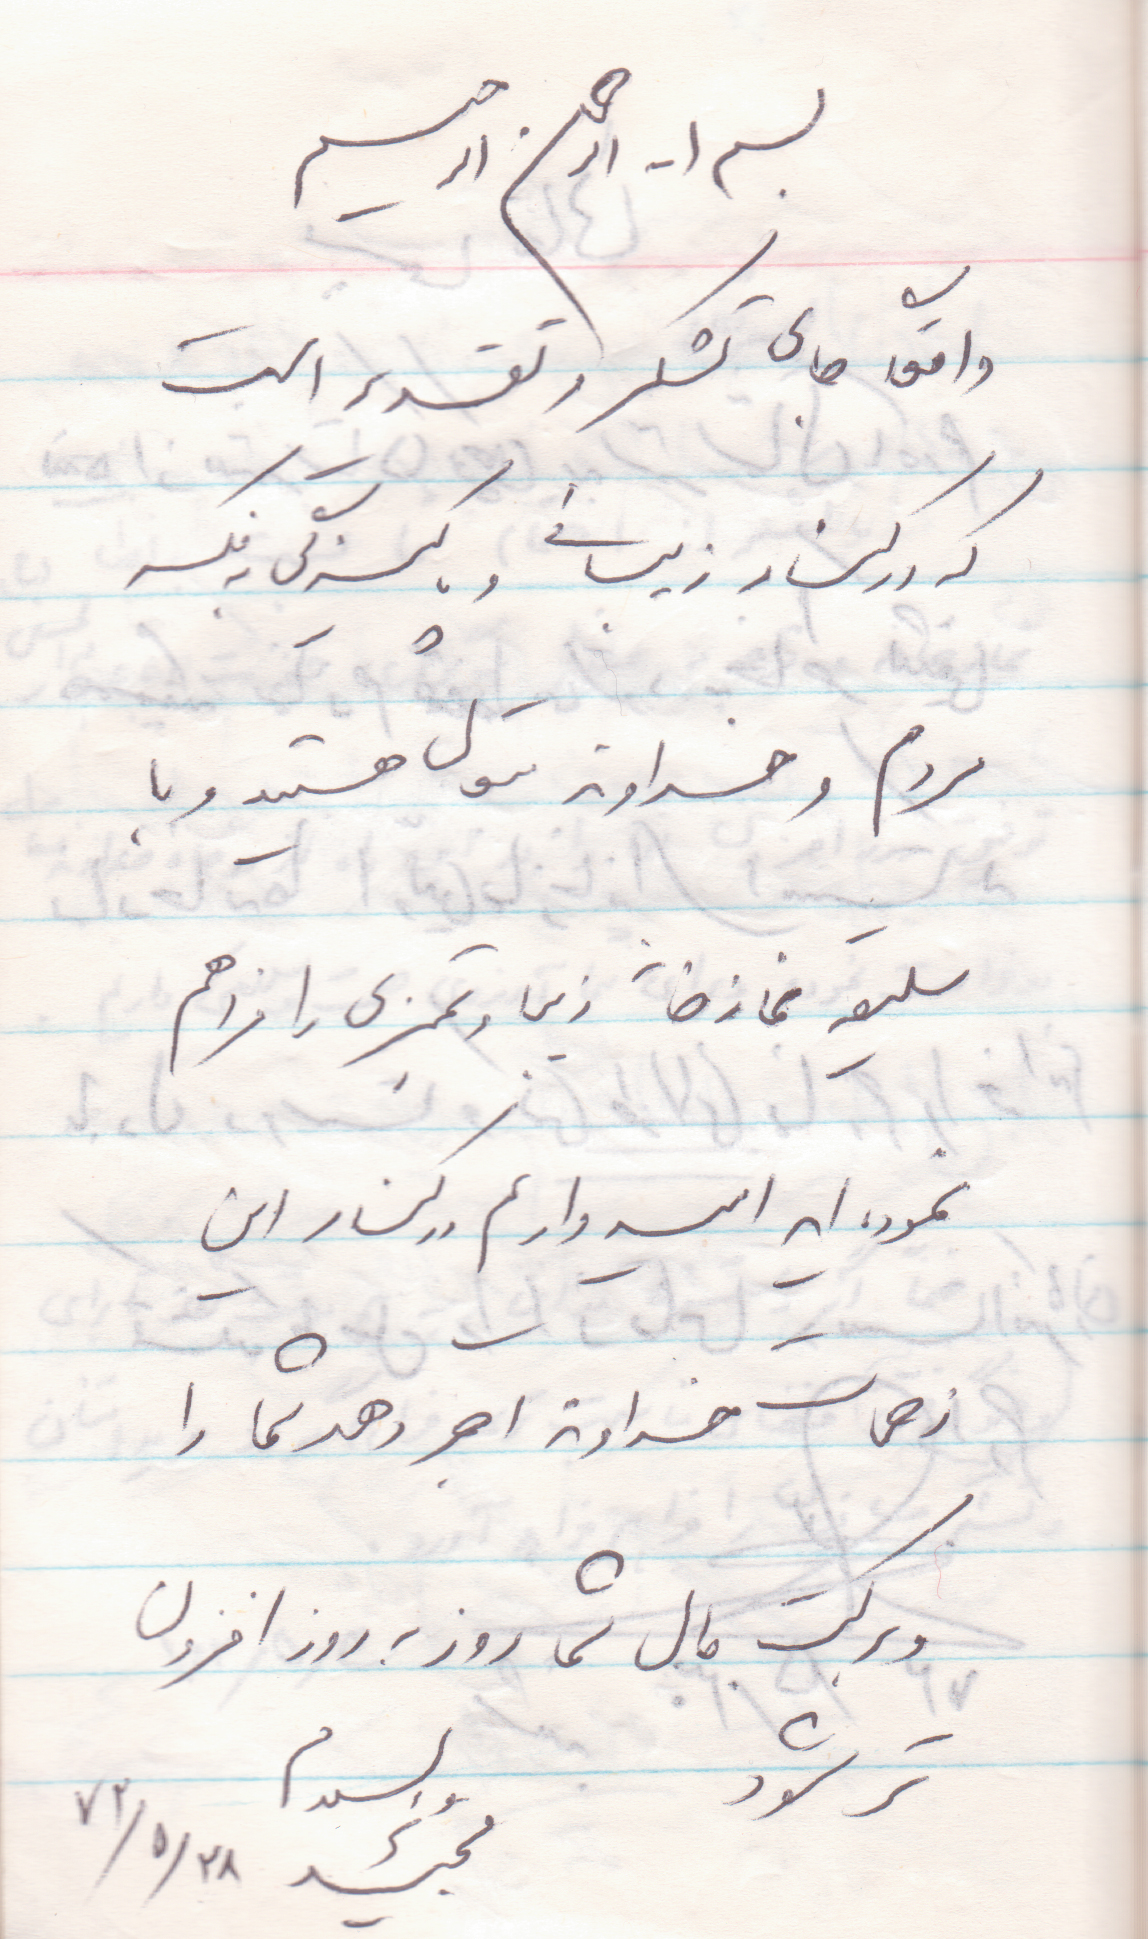 بسم الله الرحمن الرحیم
واقعاً جای تشکر و تقدیر است
که در کنار زیبائی و پاکیزگی به فکر
مردم و خداوند متوکل هستید و با
سلیقه نمازخانه زیبا و تمیزی را فراهم
نموده‌اید امیدوارم در کنار این
زحمات خداوند اجر دهد شما را
و برکت مال شما روز به روز افزون
تر شود
والسلام
۷۲/۵/۲۸